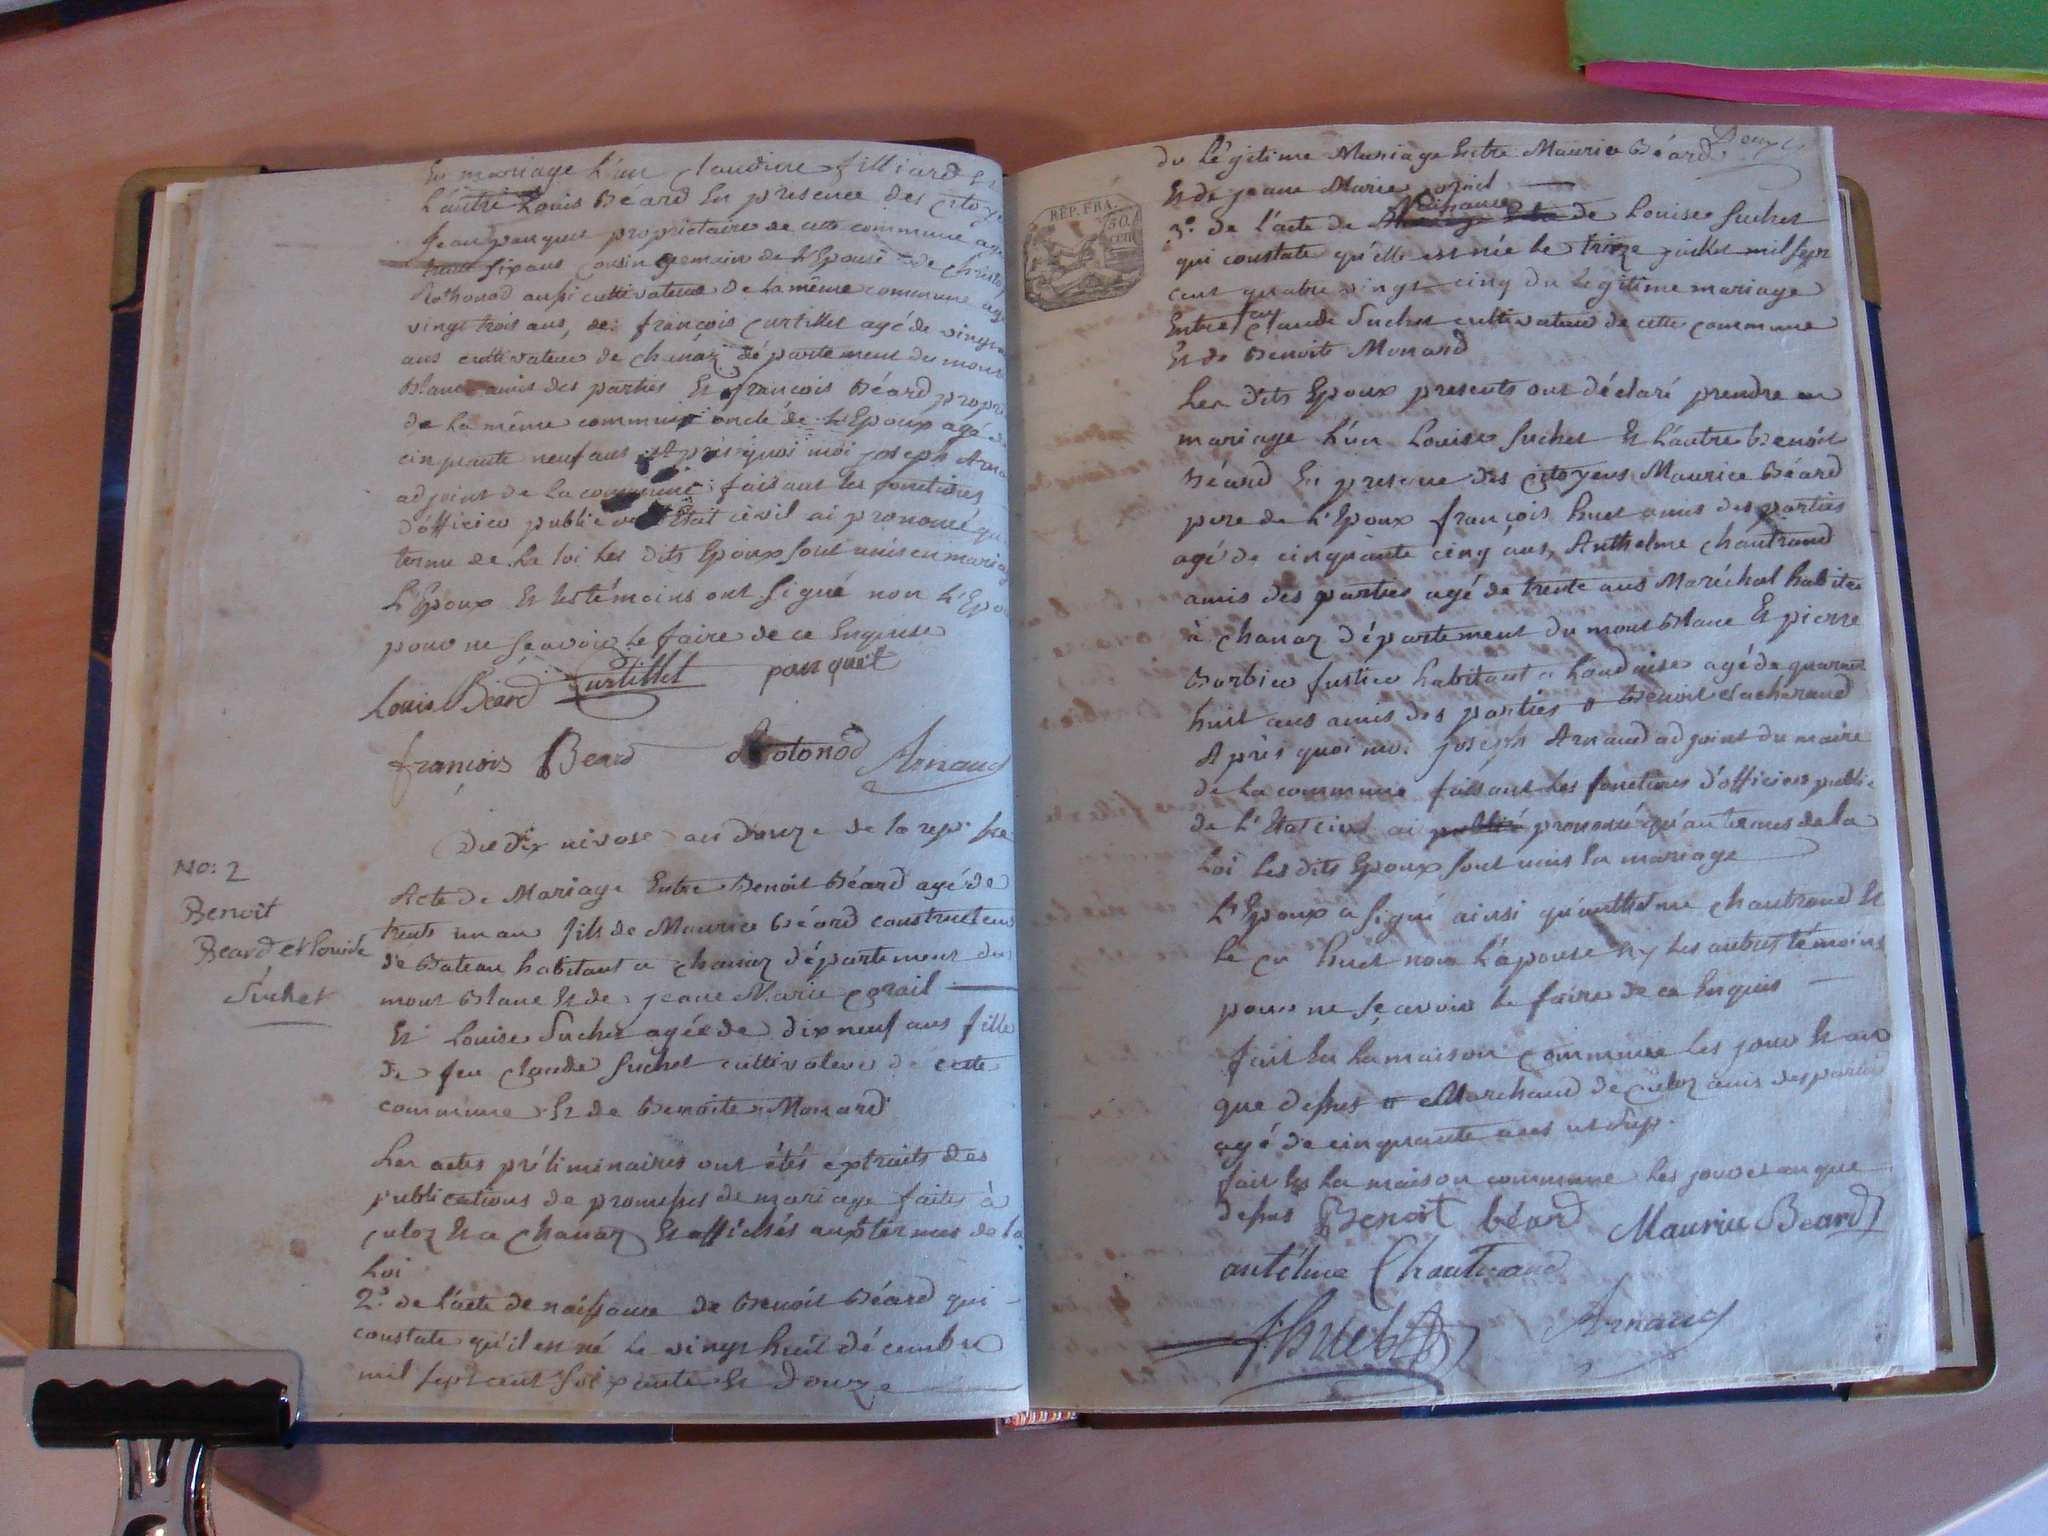 En mariage l'un Claudine filliard Et
L'autre Louis Béard En presence des Citoye
Jean panquet propriétaire de cette commune agé
trente six ans Cousin germain de L'Epouse de Christo
Rothonod aussi cultivateur de la même commune agé
vingt trois ans, de françois Curtillet agé de vingt
ans cultivateur de Chanaz département du mont
Blanc amis des parties Et françois Béard propri
de la même commune oncle de L'Epoux agé de
cinquante neuf ans Après quoi moi joseph Arna
adjoint de la commune faisant les fonctions
d'officier public de l'Etat civil ai prononcé qu
terme de la loi les dits Epoux sont unis en maria
L'Epoux Et les témoins ont signé non L'Epou
pour ne scavoir le faire de ce Enquise
Louis Béard Curtillet panquet
françois Beard Rotonod Arnaud
Du dix nivose an douze de la rep. fse
No: 2
Benoit
Beard et Louise
Suchet
Acte de Mariage Entre Benoit Béard agé de
trente un an fils de Maurice Béard constructeur
de Bateau habitant a Chanaz département du
mont Blanc Et de jeane Marie
Et Louise Suchet agée de dix neuf ans fille
de feu Claude Suchet cultivateur de cette
commune Et de Benoite Monard
Les actes préliminaires ont étés éxtraits des
publications de promesses de mariage faites à
Culoz Et a Chanaz Et affichés aux termes de la
Loi
2.° de l'acte de naissance de Benoit Béard qui
constate qu'il est né le vingt huit décembre
mil sept cent soixante Et douze
Douze
du Légitime Mariage Entre Maurice Béard
Et de jeane Marie
RÉP. FRA.
50.
cen
3.° de l'acte de Naissance de Louise Suchet
qui constate qu'elle est née le treize juillet mil sept
cent quatre vingt cinq du Légitime mariage
Entre feu Claude Suchet cultivateur de cette commune
Et de Benoite Monard
Les dits Epoux presents ont déclaré prendre en
mariage L'un Louise Suchet Et L'autre Benoit
Béard En presence des citoyens Maurice Béard
pere de L'Epoux françois huet amis des parties
agé de cinquante cinq ans, Anthelme Chautrand
amis des parties agé de trente ans Maréchal habitan
à Chanaz département du mont Blanc Et pierre
Barbier fustier habitant a Landaise agé de quarante
huit ans amis des parties # Benoit
Après quoi moi joseph Arnaud adjoint du maire
de la commune faisant les fonctions d'officier public
de L'Etat civil ai publié prononcé qu'au termes de la
Loi Les dits Epoux sont unis En mariage
L'Epoux a signé ainsi qu'anthelme chautrand Et
Le cn huet non L'épouse ny les autres témoins
pour ne scavoir le faire de ce Enquis
fait En la maison commune les jour Et an
que dessus # Marchand de Culoz amis des parties
agé de cinquante ans
fait En la maison commune les jour et an que
dessus Benoit béard Maurice Beard
antélme Chautrand
f huet Arnaud